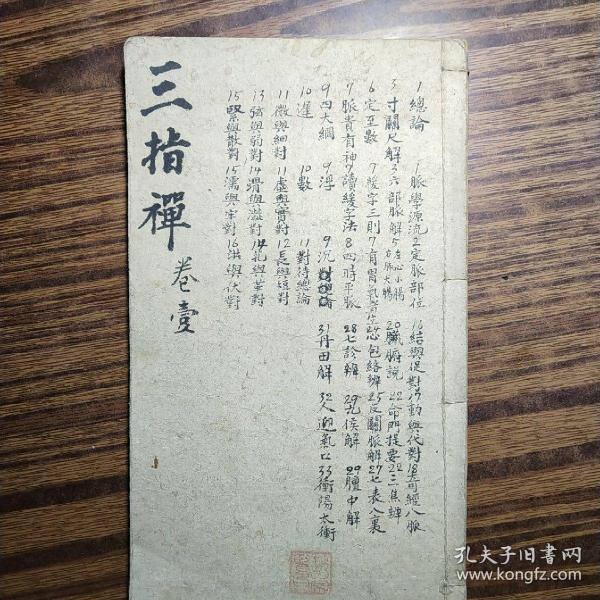 三指禪
卷壹
1總論 1脈學源流 2定脈部位 16結與促對 17動與代對 18奇經八脈
3寸關尺解 3六部脈解 5左心小腸 右肺大腸 20臟腑說 22命門提要 22三焦辨
6定至數 7緩字三則 7有胃氣者生 24心包絡辨 25反關脈解 27七表八裏
7脈貴有神 7讀緩字法 8四時平脈 28七診辨 29九候解 29膻中解
9四大綱 9浮 9沉 31丹田解 32人迎氣口 33衝陽太衝
10遲 10數 11對待總論
11微與細對 11虛與實對 12長與短對
13弦與弱對 14滑與濇對 14芤與革對
15緊與散對 15濡與牢對 16洪與伏對
孔夫子旧書网
www.kongfz.com